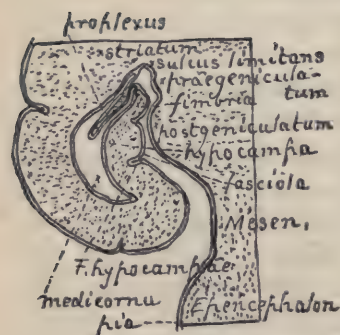 proplexus
striatum
sulcus limitans
praegenicula-
tum
fimbria
postgeniculatum
hypocampa
fasciola
Mesen,
F. hypocampae
medicornu
Epencephalon
pia